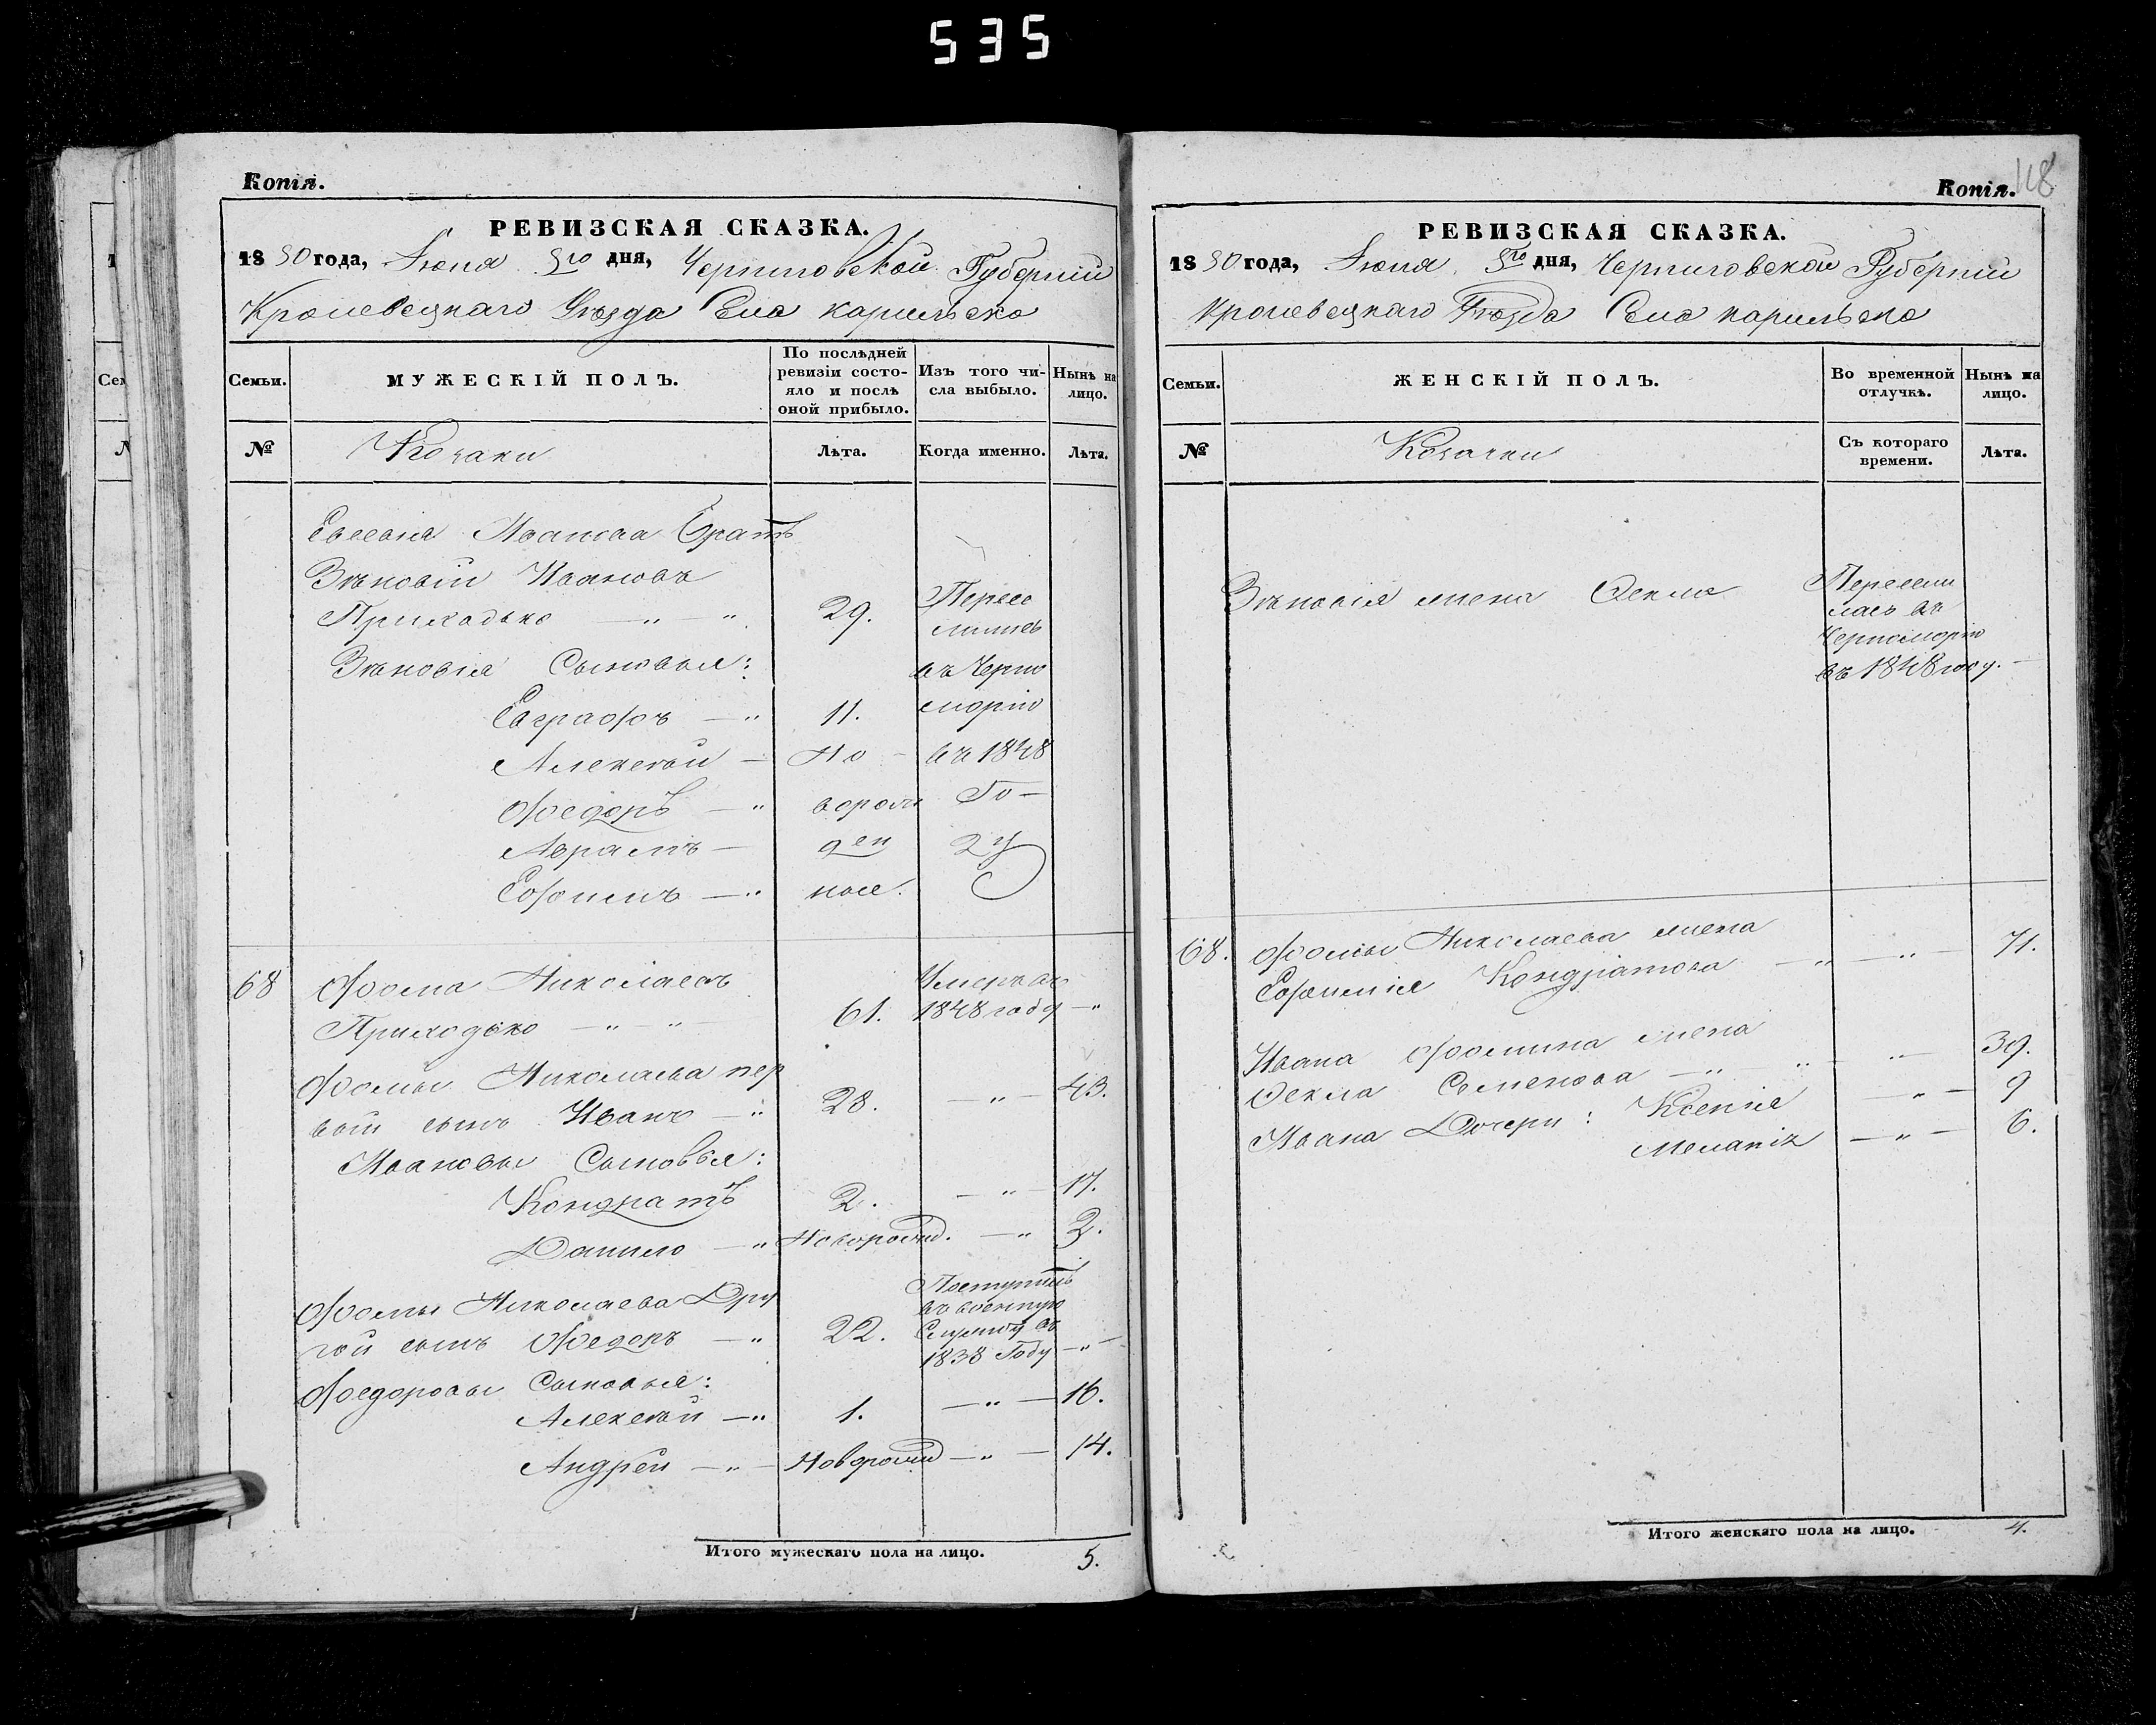 535
Копія.
РЕВИЗСКАЯ СКАЗКА.
1850 года, Іюня 5го дня, Черниговской Губерніи
Кролевецкаго Уѣзда Села Карильска
Семьи.
МУЖЕСКІЙ ПОЛЪ.
По послѣдней ревизіи состо-
яло и послѣ оной прибыло.
Изъ того чи-
сла выбыло.
Нынѣ на лицо.
№
Козаки
Лѣта.
Когда именно.
Лѣта.
Евсевія Иванова братъ
Зѣновій Ивановъ
Приходько — „ — „ 29. Пересе
лились
Зѣновія Сыновья: въ Черно
Евграфъ — „ 11. морію
Алексѣй — Но — въ 1848
Федоръ — „ ворож Го —
Аврамъ — ден ду
Ефимъ — „ ные.
68 Фома Николаевъ Умеръ въ
Приходько — „ — „ — 61. 1848 году — „
Фомы Николаева пер
вый сынъ Иванъ — „ 28. — „ — 43.
Ивановы Сыновья:
Кондратъ 2. — „ — 17.
Данило — „ Новорожд. — „ 2.
Фомы Николаева Дру
гой сынъ Федоръ — „ 22. Поступилъ
въ военную
Службу въ
1838 Году — „ —
Федоровы Сыновья:
Алексѣй — „ 1. — „ — 16.
Андрей — „ — Новорожд — „ — 14.
Итого мужескаго пола на лицо. 5.
118
Копія.
РЕВИЗСКАЯ СКАЗКА.
1850 года, Іюня 5го дня, Черниговской Губерніи
Кролевецкаго Уѣзда Села Карильска
Семьи.
ЖЕНСКІЙ ПОЛЪ.
Во временной
отлучкѣ.
Нынѣ на
лицо.
№
Козачки
Съ котораго
времени.
Лѣта.
Зѣновія жена Фекла Пересели
лась въ
Черноморію
въ 1848 году. —
68. Фомы Николаева жена
Ефимія Кондратова — „ — „ — 71.
Ивана Фомина жена
Фекла Семенова — „ „ — „ — 39.
Ивана Дочери: Ксенія — „ — 9
Меланія — „ — 6.
Итого женскаго пола на лицо. 4.